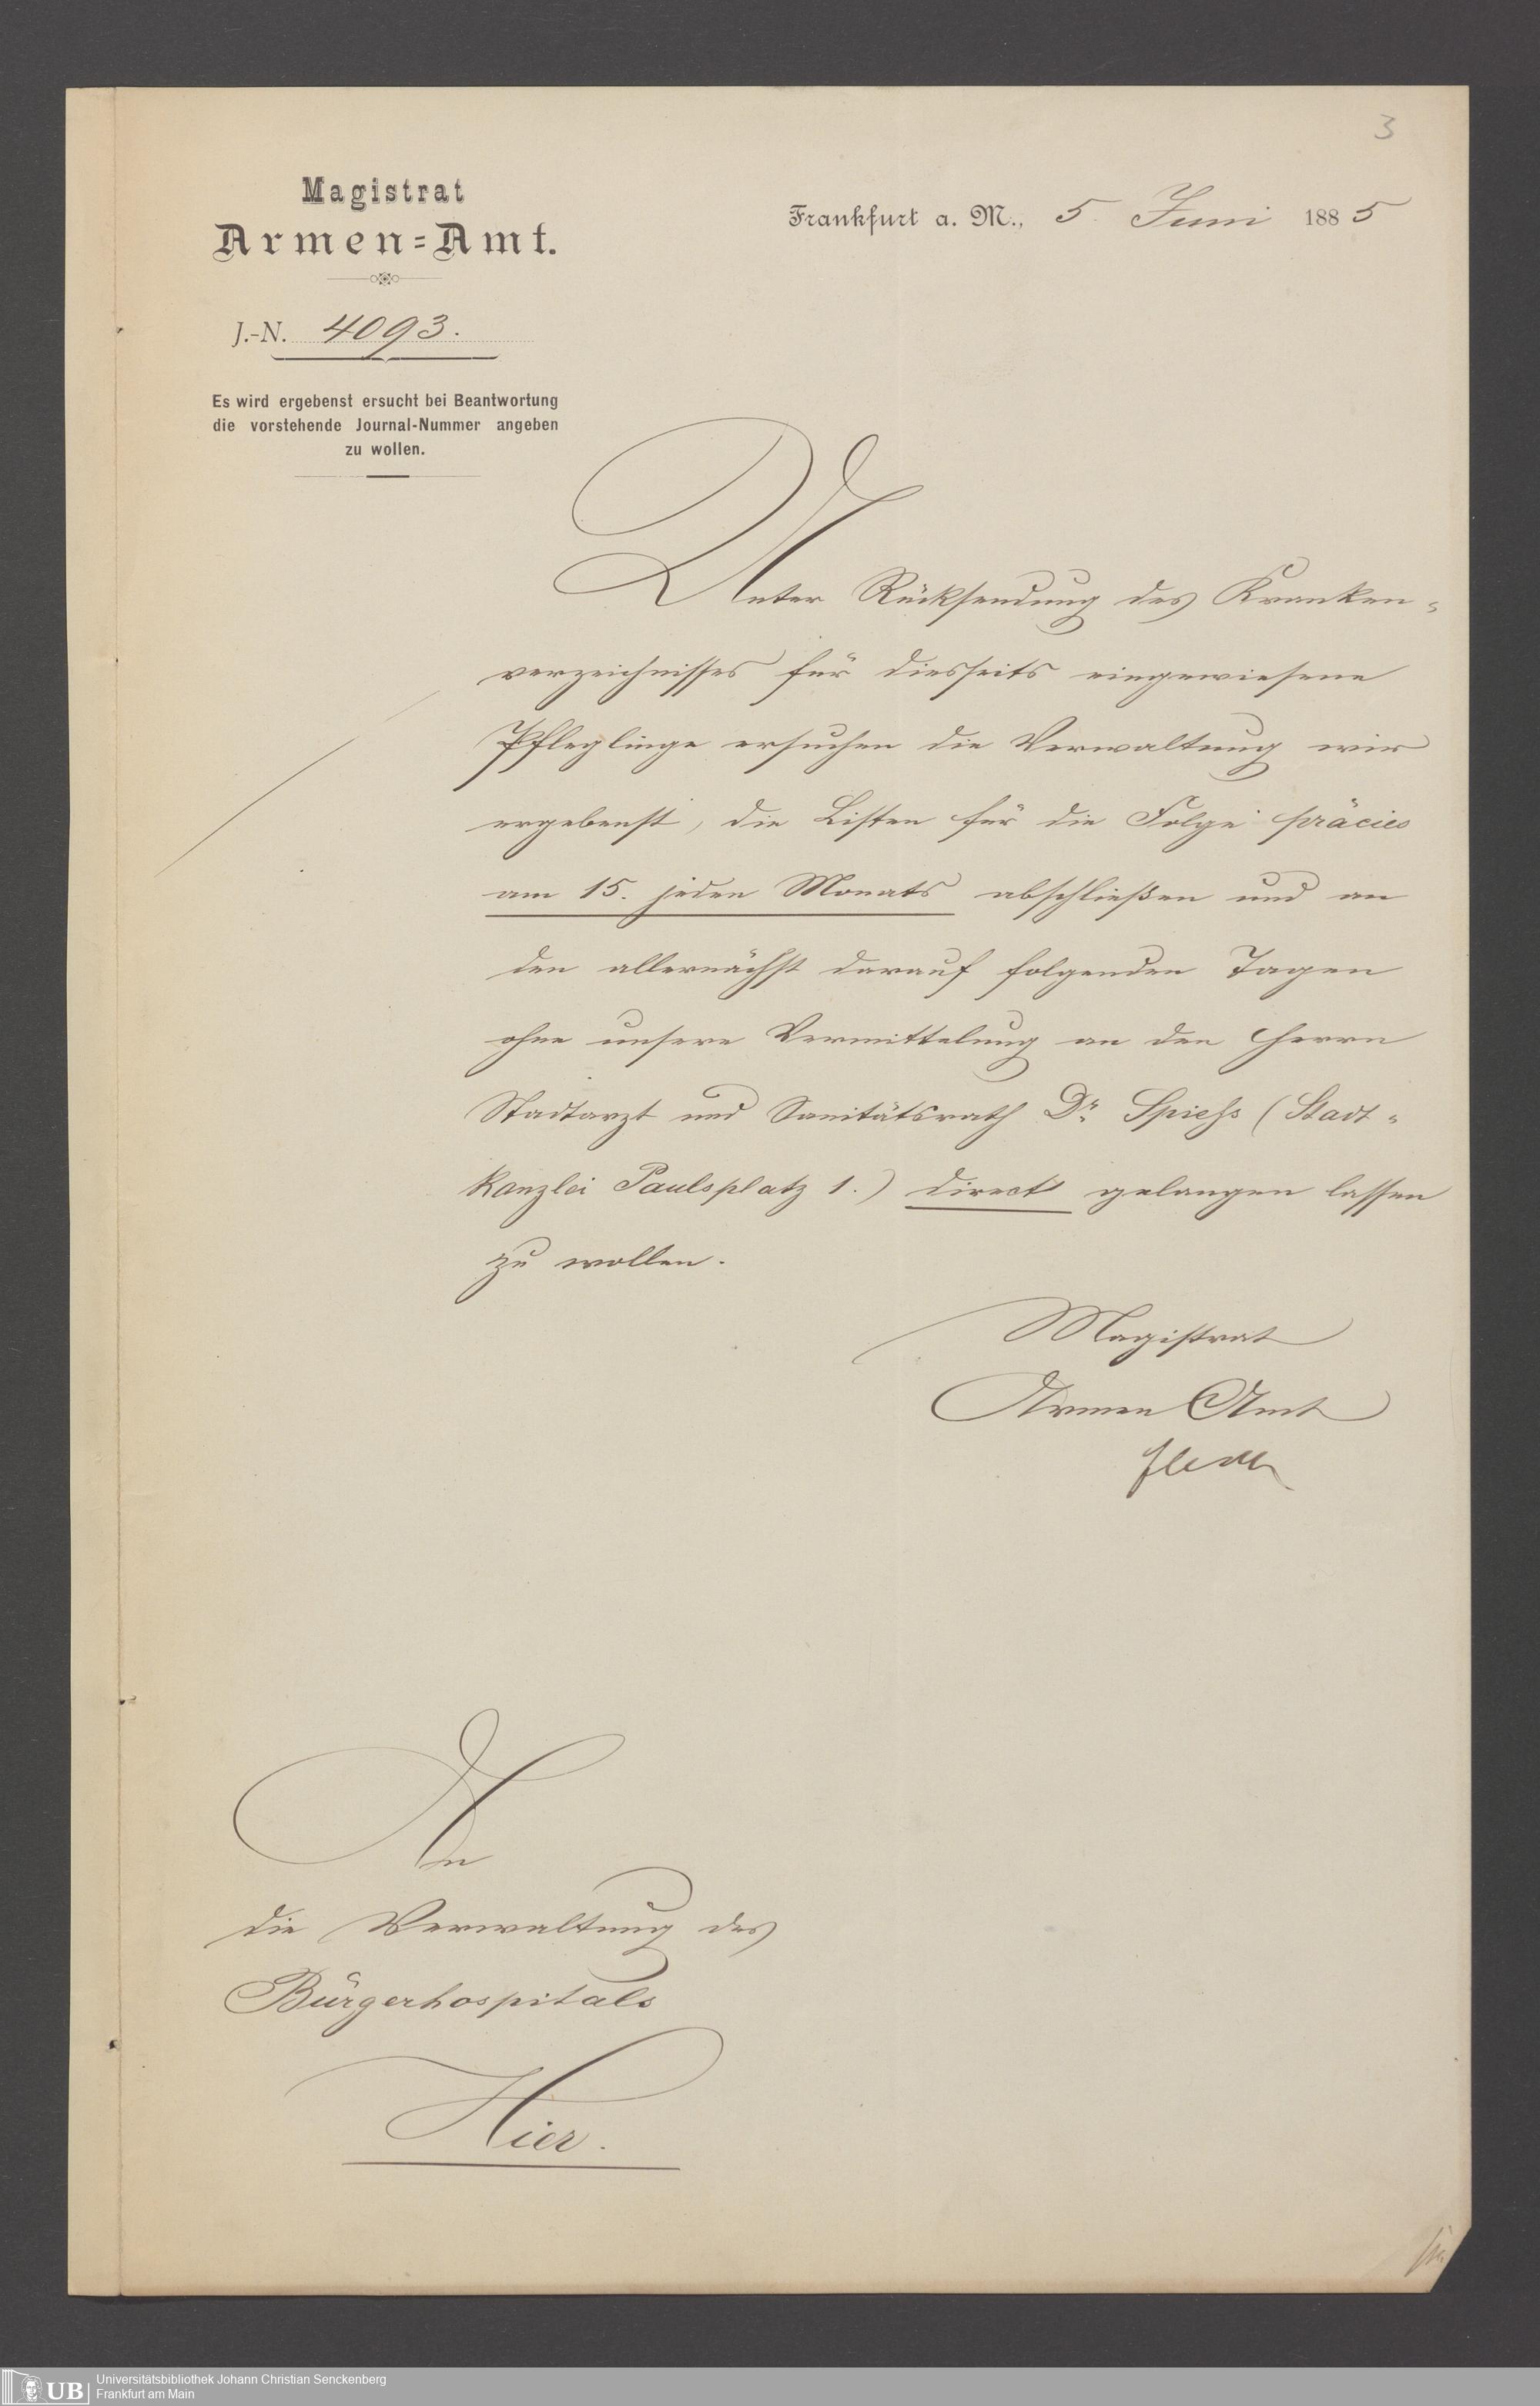 3
Magistrat
Armen-Amt.
Frankfurt a. M., 5. Juni 1885
J.-N. 4093.
Es wird ergebenst ersucht bei Beantwortung
die vorstehende Journal-Nummer angeben
zu wollen.
Unter Rücksendung des Kranken-
verzeichnisses für diesseits eingewiesene
Pfleglinge ersuchen die Verwaltung wir
ergebenst, die Listen für die Folge präcies
am 15. jeden Monats abschließen und an
den allernächst darauf folgenden Tagen
ohne unsere Vermittelung an den Herrn
Stadtarzt und Sanitätsrath Dr. Spiess (Stadt-
kanzlei Paulsplatz 1.) direct gelangen lassen
zu wollen.
Magistrat
Armen Amt
An
die Verwaltung des
Bürgerhospitals
Hier.
UB
Universitätsbibliothek Johann Christian Senckenberg
Frankfurt am Main